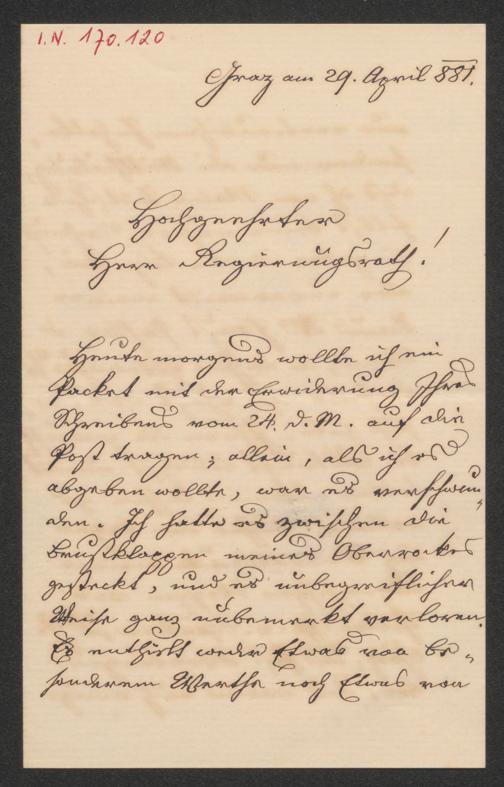 I.N. 170.120
Graz am 29. April 881.
Hochgeehrter
Herr Regierungsrath!
Heute morgens wollte ich ein
Packet mit der Erwiderung Ihres
Schreibens vom 24. d. M. auf die
Post tragen; allein, als ich es
abgeben wollte, war es verschwun-
den. Ich hatte es zwischen die
Brustklappen meines Oberrockes
gesteckt, und es unbegreiflicher
Weise ganz unbemerkt verloren.
Es enthielt weder Etwas von be-
sonderem Werthe noch Etwas von